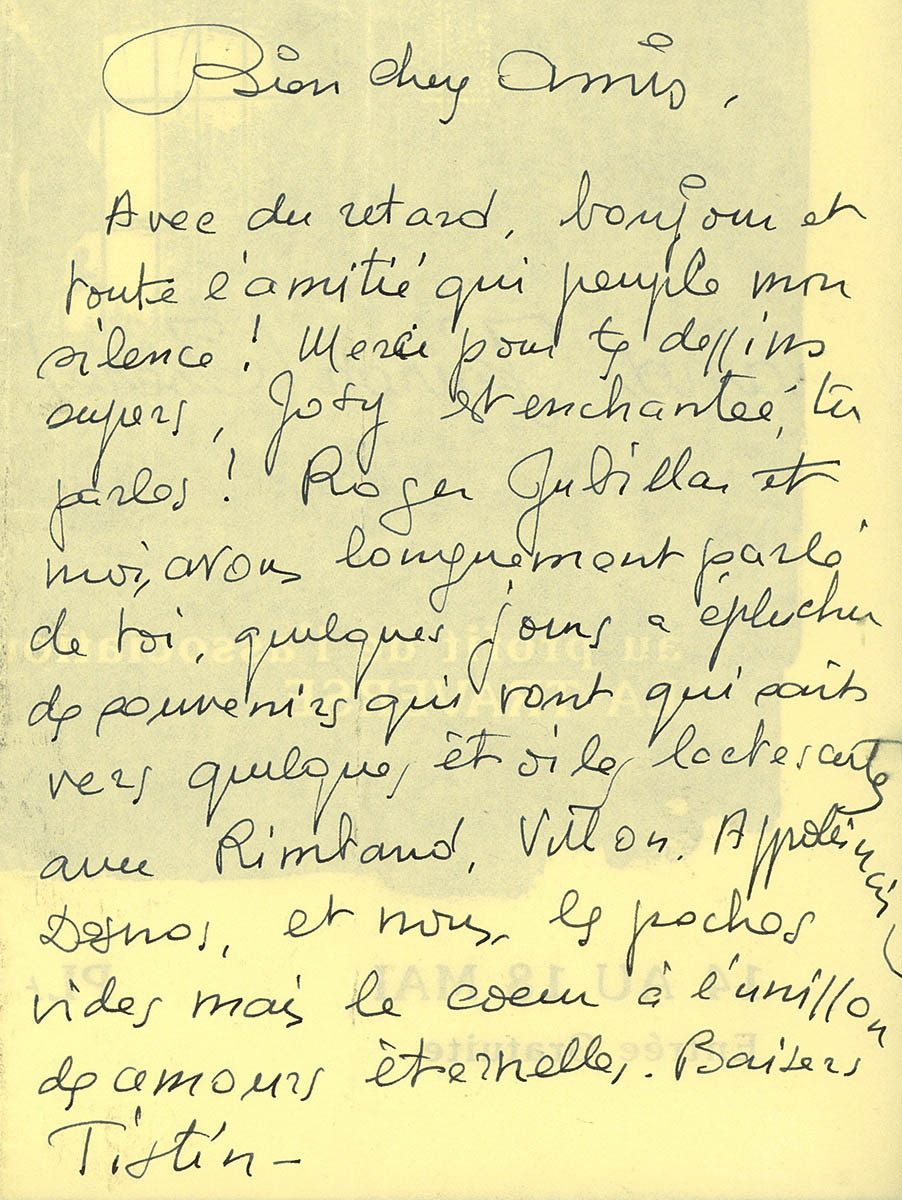 Bien chers Amis,
Avec du retard, bonjour et
toute l'amitié qui peuple mon
silence ! Merci pour tes dessins
supers, Josy est enchantée, tu
parles ! Roger Jubillar et
moi, avons longuement parlé
de toi, quelques jours a éplucher
des souvenirs qui vont qui sait
vers quelques étoiles lactescentes
avec Rimbaud, Villon, Appolinaire,
Desnos, et nous, les poches
vides mais le coeur à l'unisson
des amours éternelles. Baisers
Tistin –
au profit de l'association
LA TRAVERSE
14 AU 18 MAI
Entrée Gratuite